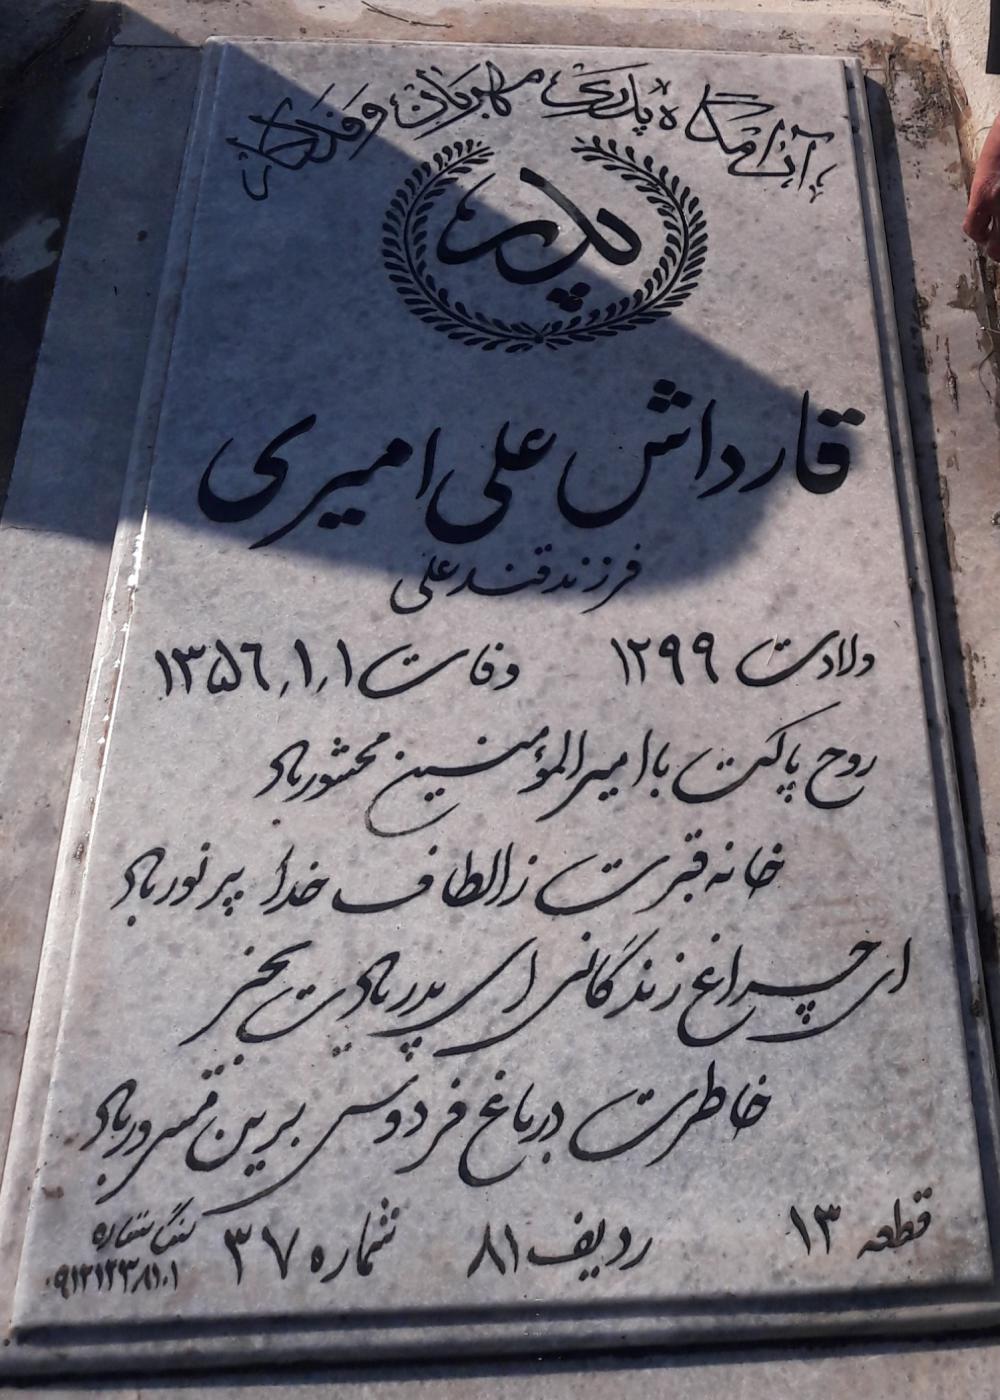 آرامگاه پدری مهربان و فداکار
پدر
قارداش علی امیری
فرزند قندعلی
ولادت ۱۲۹۹ وفات ۱۳۵۶٫۱٫۱
روح پاکت با امیرالمؤمنین محشور باد
خانه قبرت ز الطاف خدا پر نور باد
ای چراغ زندگانی ای پدر یادت بخیر
خاطرت در باغ فردوس برین مسرور باد
قطعه ۱۳ ردیف ۸۱ شماره ۳۷
سنگ ستاره
۰۹۱۲۱۲۳۸۱۰۱